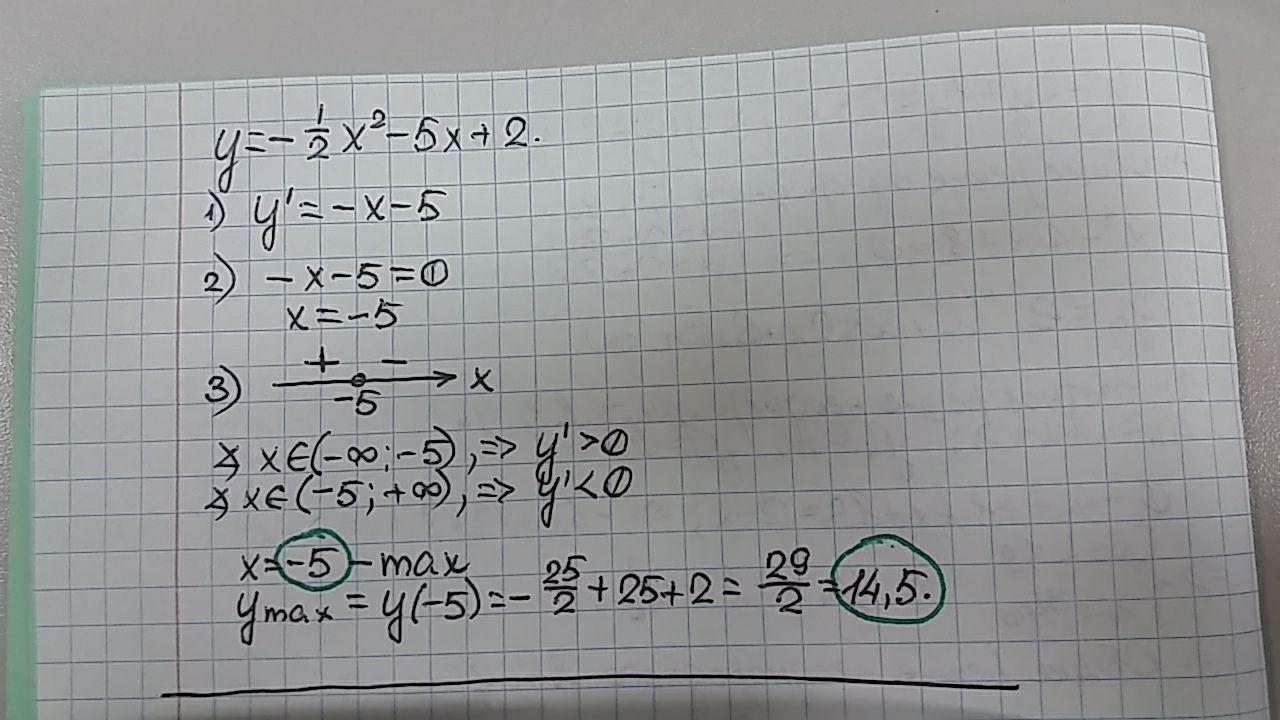 y=-1/2x²-5x+2.
1) y'=-x-5
2) -x-5=0
x=-5
+ -
3) x
-5
∀ x∈(-∞;-5),=> y'>0
∀ x∈(-5;+∞),=> y'<0
x=-5-max
ymax=y(-5)=-25/2+25+2=29/2=14,5.